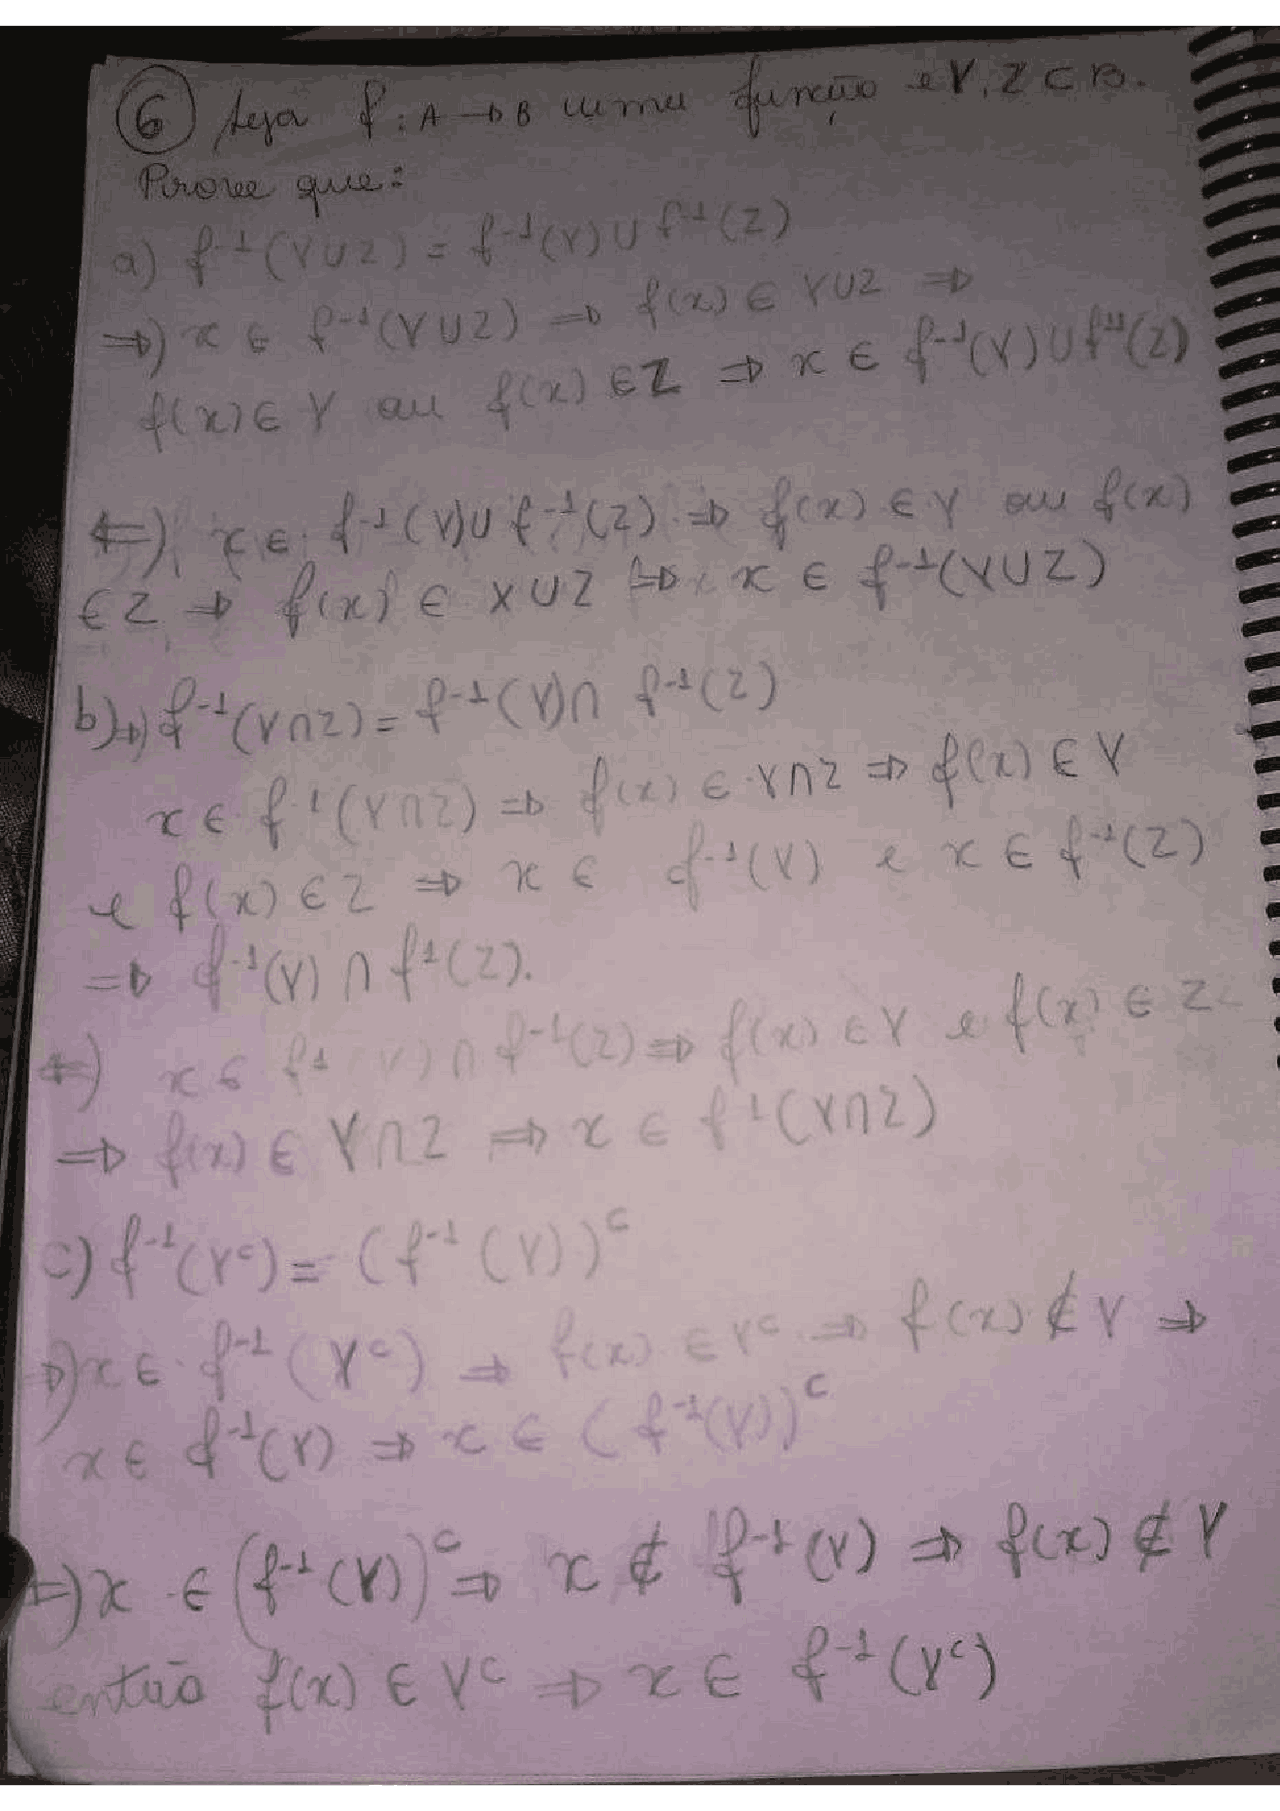 ⑥ Seja f: A → B uma função e Y, Z ⊂ B.
Prove que:
a) f⁻¹(Y∪Z) = f⁻¹(Y) ∪ f⁻¹(Z)
⇒) x ∈ f⁻¹(Y∪Z) ⇒ f(x) ∈ Y∪Z ⇒
f(x) ∈ Y ou f(x) ∈ Z ⇒ x ∈ f⁻¹(Y) ∪ f⁻¹(Z)
⇐) x ∈ f⁻¹(Y) ∪ f⁻¹(Z) ⇒ f(x) ∈ Y ou f(x)
∈ Z ⇒ f(x) ∈ X∪Z ⇒ x ∈ f⁻¹(Y∪Z)
b) ⇒) f⁻¹(Y∩Z) = f⁻¹(Y) ∩ f⁻¹(Z)
x ∈ f⁻¹(Y∩Z) ⇒ f(x) ∈ Y∩Z ⇒ f(x) ∈ Y
e f(x) ∈ Z ⇒ x ∈ f⁻¹(Y) e x ∈ f⁻¹(Z)
⇒ f⁻¹(Y) ∩ f⁻¹(Z).
⇐) x ∈ f⁻¹(Y) ∩ f⁻¹(Z) ⇒ f(x) ∈ Y e f(x) ∈ Z
⇒ f(x) ∈ Y∩Z ⇒ x ∈ f⁻¹(Y∩Z)
c) f⁻¹(Yᶜ) = (f⁻¹(Y))ᶜ
⇒) x ∈ f⁻¹(Yᶜ) ⇒ f(x) ∈ Yᶜ ⇒ f(x) ∉ Y ⇒
x ∈ f⁻¹(Y) ⇒ x ∈ (f⁻¹(Y))ᶜ
⇐) x ∈ (f⁻¹(Y))ᶜ ⇒ x ∉ f⁻¹(Y) ⇒ f(x) ∉ Y
então f(x) ∈ Yᶜ ⇒ x ∈ f⁻¹(Yᶜ)